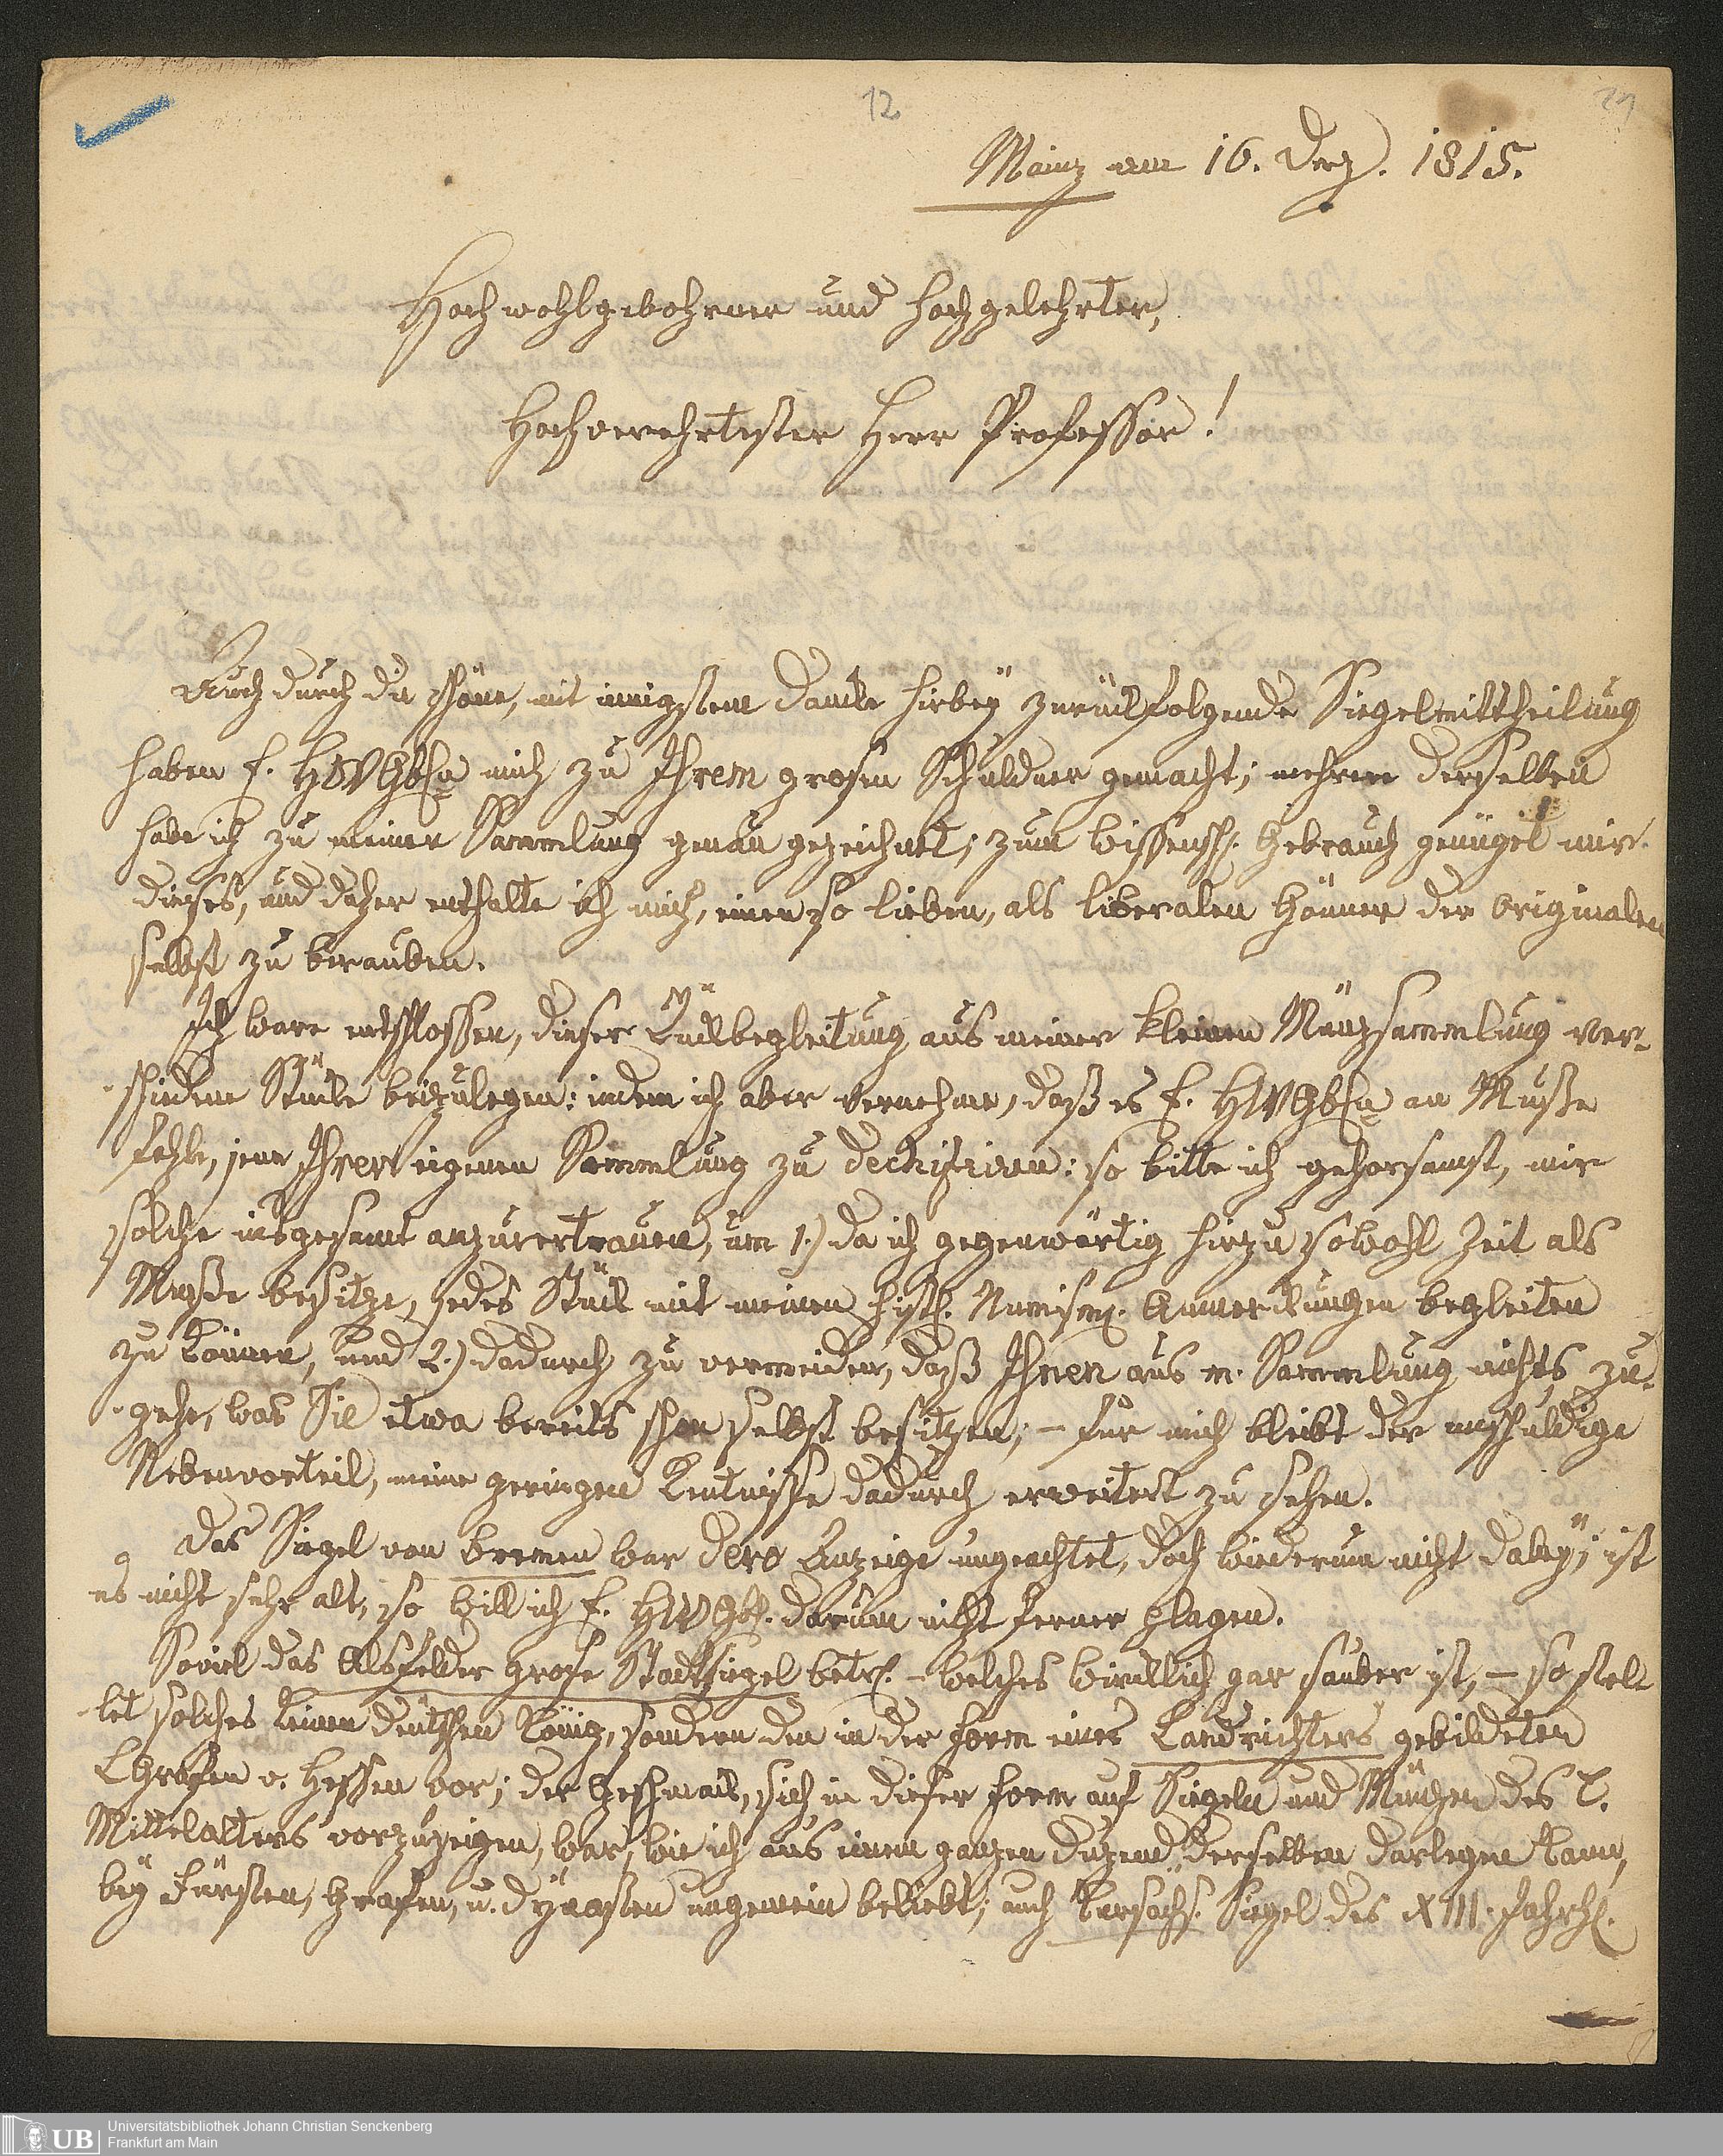 12
Mainz am 16. Dez. 1815.
Hochwohlgebohrner und hochgelehrter,
Hochverehrtester Herr Professor!
Auch durch die schöne, mit innigstem Danke hirbeÿ zurückfolgende Siegelmittheilung
haben E. HWGb mich zu Ihrem grosen Schuldner gemacht; mehrere derselben
habe ich zu meiner Sammlung genau gezeichnet; zum wissensch. Gebrauch genüget mir
dieses, und daher enthalte ich mich, einen so lieben, als liberalen Gönner der originalen
selbst zu berauben.
Ich ware entschlossen, dieser Rückbegleitung aus meiner kleinen Münzsammlung ver-
schiedene Stücke beizulegen: indem ich aber vernehme, daß es E. HWGb an Muße
fehle, jene Ihrer eigenen Sammlung zu dechifriren: so bitte ich gehorsamst, mir
solche insgesamt anzuvertrauen, um 1.) da ich gegenwärtig hirzu sowohl Zeit als
Muße besitze, jedes Stück mit meinen hist. Numism. Anmerkungen begleiten
zu können, und 2.) dadurch zu vermeiden, daß Ihnen aus m. Sammlung nichts zu-
gehe, was Sie etwa bereits schon selbst besitzen; – für mich bleibt der unschuldige
Nebenvorteil, meine geringen Kentnisse dadurch erweitert zu sehen.
Das Siegel von Bremen war dero Anzeige ungeachtet, doch wiederum nicht dabeÿ; ist
es nicht sehr alt, so will ich E. HWGb. darum nicht ferner plagen.
Soviel das Alsfelder grose Stadtsiegel betr. – welches wircklich gar sauber ist, – so stel-
let solches keinen deutschen König, sondern den in der Form eines Landrichters gebildeten
LGrafen v. Hessen vor; der Geschmack, sich in dieser Form auf Siegeln und Münzen des
Mittelalters vorzuzeigen, war, wie ich aus einem ganzen Duzend derselben darlegen kann,
beÿ Fürsten, Grafen, u. Dÿnasten ungemein beliebt; auch Kursächs. Siegel des XIII. Jahrh.
UB
Universitätsbibliothek Johann Christian Senckenberg
Frankfurt am Main